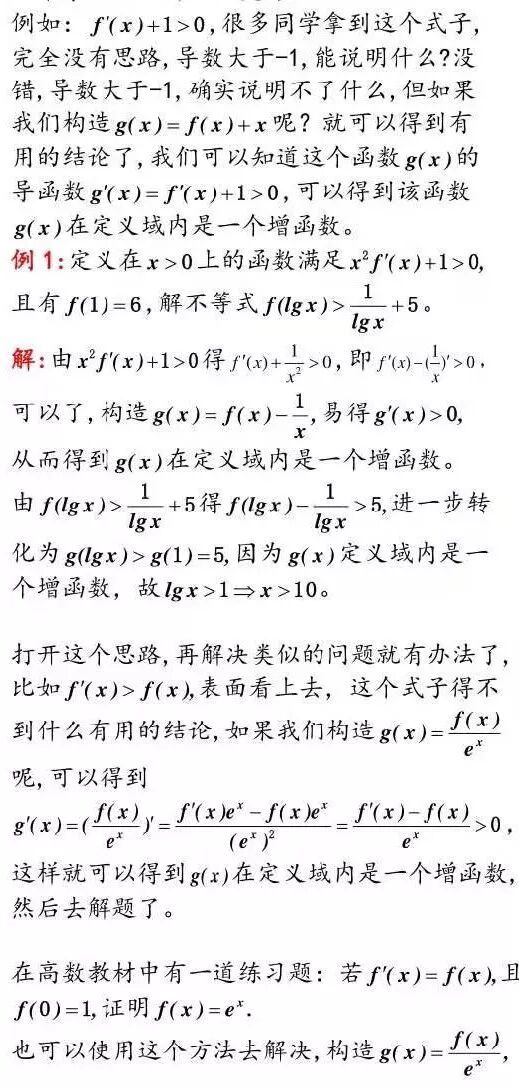 例如: f'(x)+1>0,很多同学拿到这个式子,
完全没有思路,导数大于-1,能说明什么?没
错,导数大于-1,确实说明不了什么,但如果
我们构造g(x)=f(x)+x呢? 就可以得到有
用的结论了,我们可以知道这个函数g(x)的
导函数g'(x)=f'(x)+1>0,可以得到该函数
g(x)在定义域内是一个增函数。
例1:定义在x>0上的函数满足x²f'(x)+1>0,
且有f(1)=6,解不等式f(lgx)>1/lgx+5。
解:由x²f'(x)+1>0得f'(x)+1/x²>0,即f'(x)-(1/x)'>0,
可以了,构造g(x)=f(x)-1/x,易得g'(x)>0,
从而得到g(x)在定义域内是一个增函数。
由f(lgx)>1/lgx+5得f(lgx)-1/lgx>5,进一步转
化为g(lgx)>g(1)=5,因为g(x)定义域内是一
个增函数，故lgx>1⇒x>10。
打开这个思路,再解决类似的问题就有办法了,
比如f'(x)>f(x),表面看上去，这个式子得不
到什么有用的结论,如果我们构造g(x)=f(x)/e^x
呢,可以得到
g'(x)=(f(x)/e^x)'=(f'(x)e^x-f(x)e^x)/(e^x)²=(f'(x)-f(x))/e^x>0,
这样就可以得到g(x)在定义域内是一个增函数,
然后去解题了。
在高数教材中有一道练习题: 若f'(x)=f(x),且
f(0)=1,证明f(x)=e^x.
也可以使用这个方法去解决,构造g(x)=f(x)/e^x,